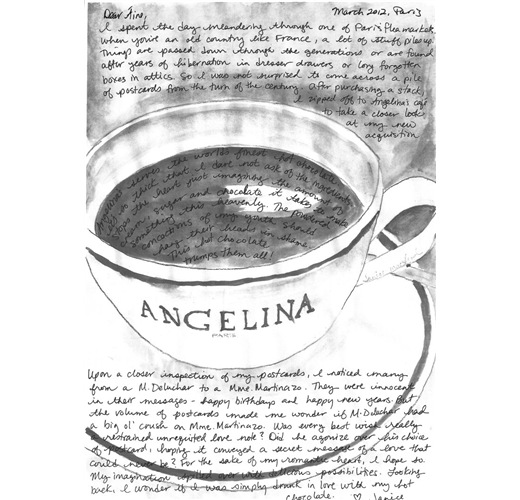 Dear Aine, March 2012, Paris
I spent the day meandering through one of Paris' flea markets,
when you're an old country like France, a lot of stuff piles up.
Things are passed down through the generations or are found
after years of hibernation in dresser drawers or long forgotten
boxes in attics. So I was not surprised to come across a pile
of postcards from the turn of the century. After purchasing a stack,
I zipped off to Angelina's café
to take a closer look
at my new
acquisition
Angelina serves the world's finest hot chocolate
so thick that I dare not ask of the ingredients
stops the heart just imagining the amount of
cream, sugar and chocolate it takes to make
something this heavenly. The powdered
concoctions of my youth should
hang their heads in shame.
This hot chocolate
trumps them all!
ANGELINA
PARIS
Upon a closer inspection of my postcards, I noticed many
from a M. Deluchar to a Mme. Martinazo. They were innocent
in their messages - happy birthdays and happy new years. But
the volume of postcards made me wonder if M. Deluchar had
a big ol' crush on Mme. Martinazo. Was every best wish really
a restrained unrequited love note? Did he agonize over his choice
of postcard, hoping it conveyed a secret message of a love that
could never be? For the sake of my romantic heart, I hope so
My imagination spilled over with delicious possibilities. Looking
back, I wonder if I was simply drunk in love with my hot
chocolate. ♡ Janice